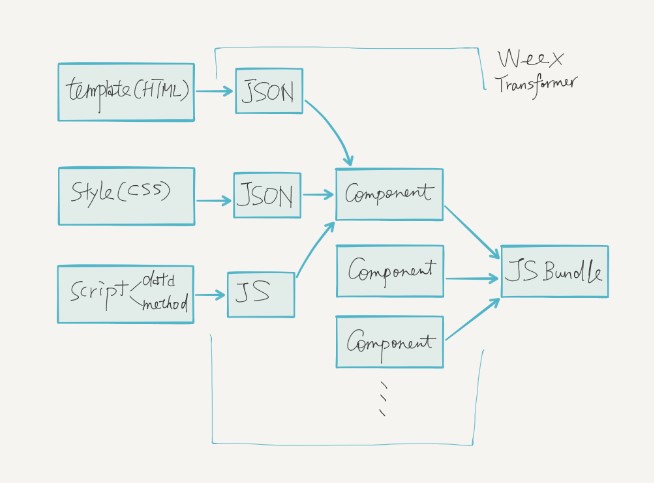 Weex
Transformer
template(HTML)
JSON
Style(CSS)
JSON
Component
Script
data
method
JS
Component
JS Bundle
Component